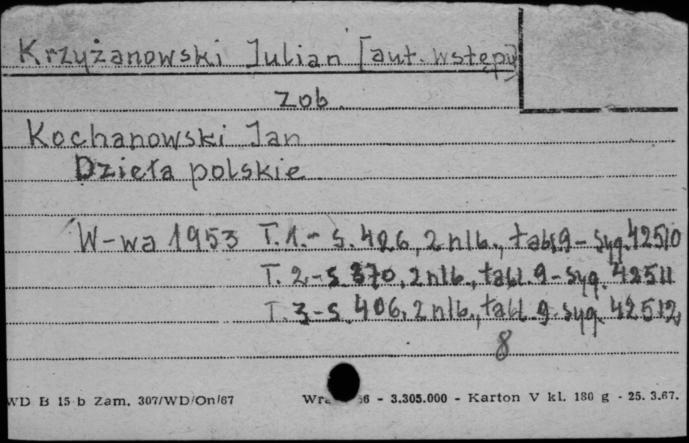 Krzyżanowski Julian [aut. wstępu]
zob.
Kochanowski Jan
Dzieła polskie
W-wa 1953 T. 1.- s. 426, 2 nlb., tabl. 9 - syg. 42510
T. 2 - s. 370, 2 nlb., tabl. 9 - syg. 42511
T. 3 - s. 406, 2 nlb., tabl. 9. syg. 42512
8
WD B 15 b Zam. 307/WD/On/67 6 - 3.305.000 - Karton V kl. 180 g - 25. 3.67.